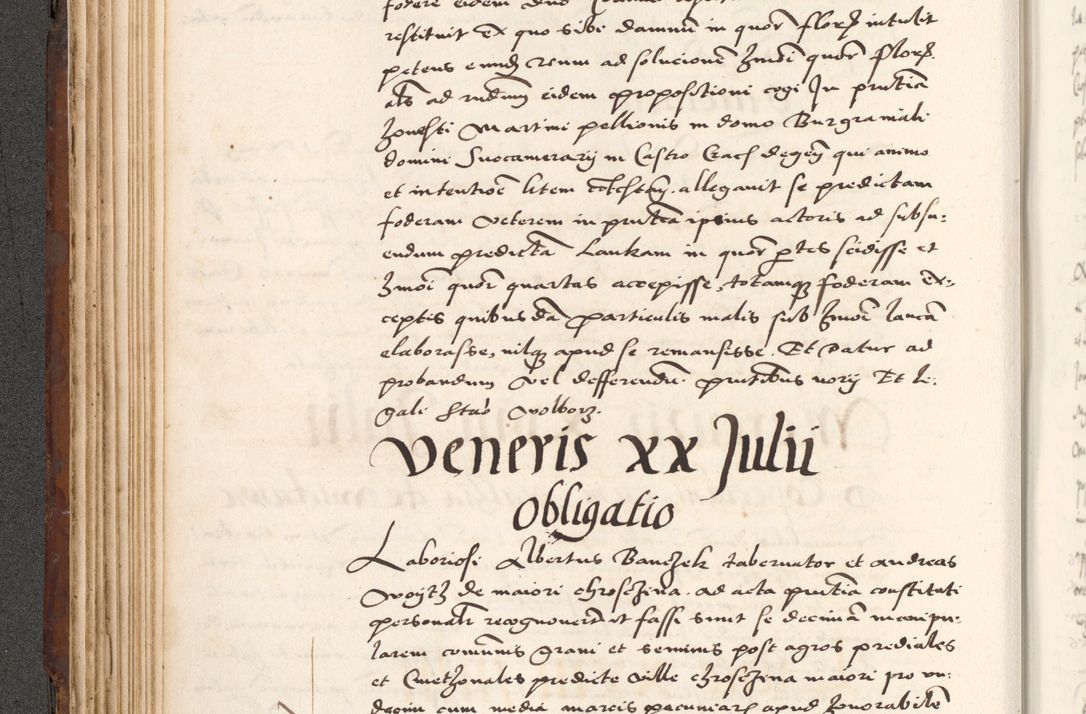 restituit Ex quo sibi damnum in quor floren intulit
petens eundem reum ad solucionem huiusmodi quor floren
als ad eidem propositioni cogi In pntia
honesti Martini pellionis in domo Burgrabiali
domini Succamerarij in Castro degen qui animo
et intentione litem allegavit se predictam
foderam veterem in pntia ipsius actoris ad subsu-
endum predicta Laukam in quor ptes scidisse et
huiusmodi quor quartas accepisse, totamque foderam ex-
ceptis quibusdam particulis malis sub huiusmodi lancam
elaborasse, nilque apud se remansisse. Et datur ad
probandum vel defferendum pntibus norij Et Le-
gali Stao Wolborz.
Veneris xx Julii
Obligatio
Laboriosi Albertus Banczek tabernator et andreas
Woytz de maiori chroschina ad acta pntia constituti
personalr recognoverunt et fassi sunt se decimam manipu-
larem comunis grani et seminis post agros prediales
et Cmethonales predicte ville chroschina maiori pro un-
decim cum media marcis pecuniarum apud honorabilem